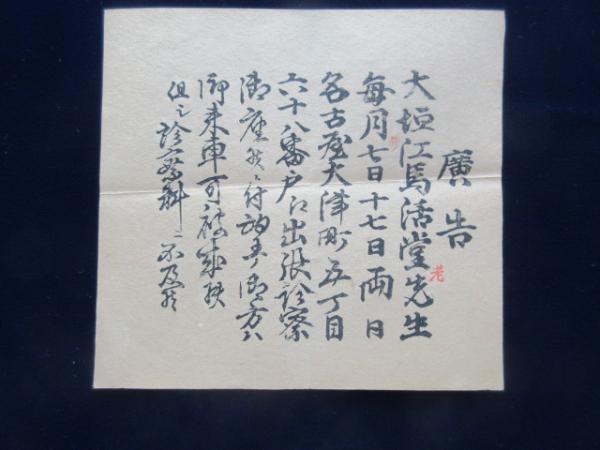 廣告
大垣江馬活堂先生
老
毎月七日十七日両日
名古屋大津町五丁目
六十八番戸江出張診察
御座候ニ付御方ハ
御来車可被成候
但シ診察料ニ不及候